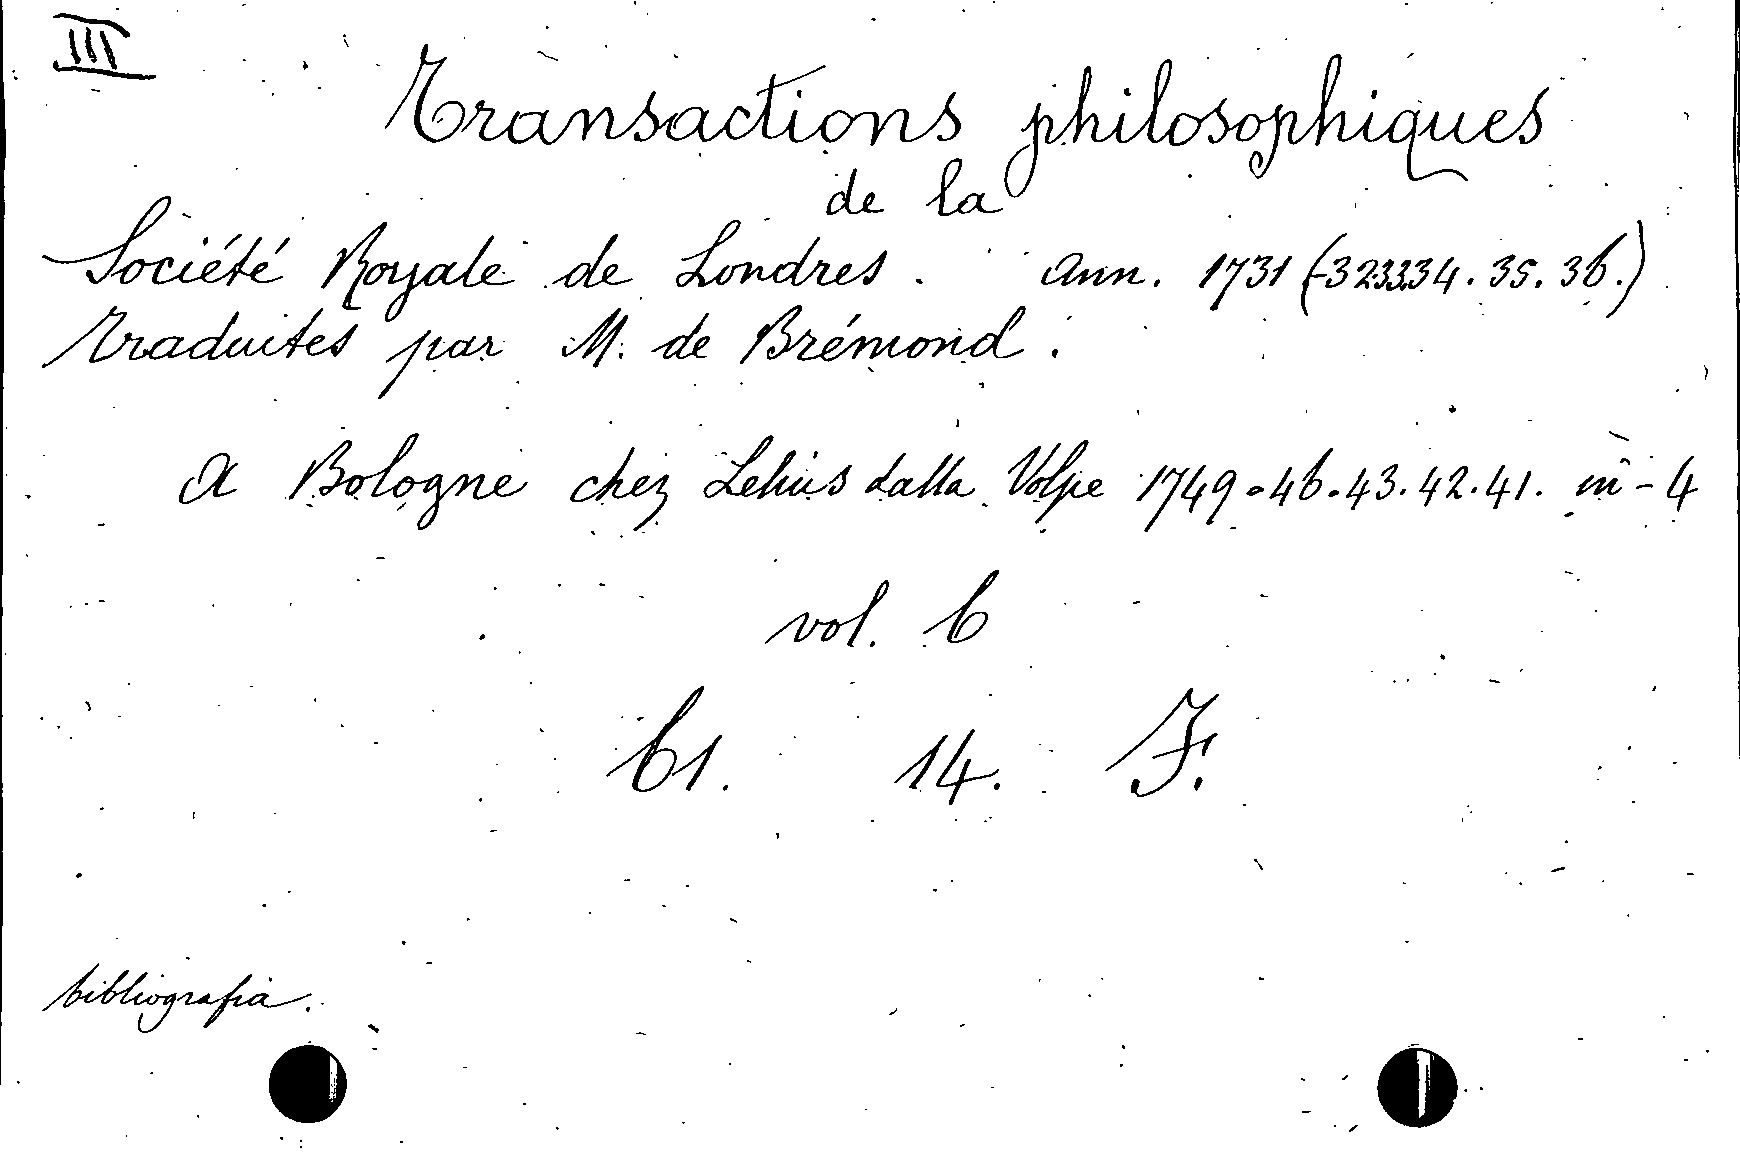 III
Transactions philosophiques
de la
Société Royale de Londres. Ann. 1731 (-32.33.34.35.36.)
traduites par M. de Brémond.
A Bologne chez Lelius dalla Volpe 1749-46.43.42.41. in-4
vol. 6
61. 14. F.
bibliografia.